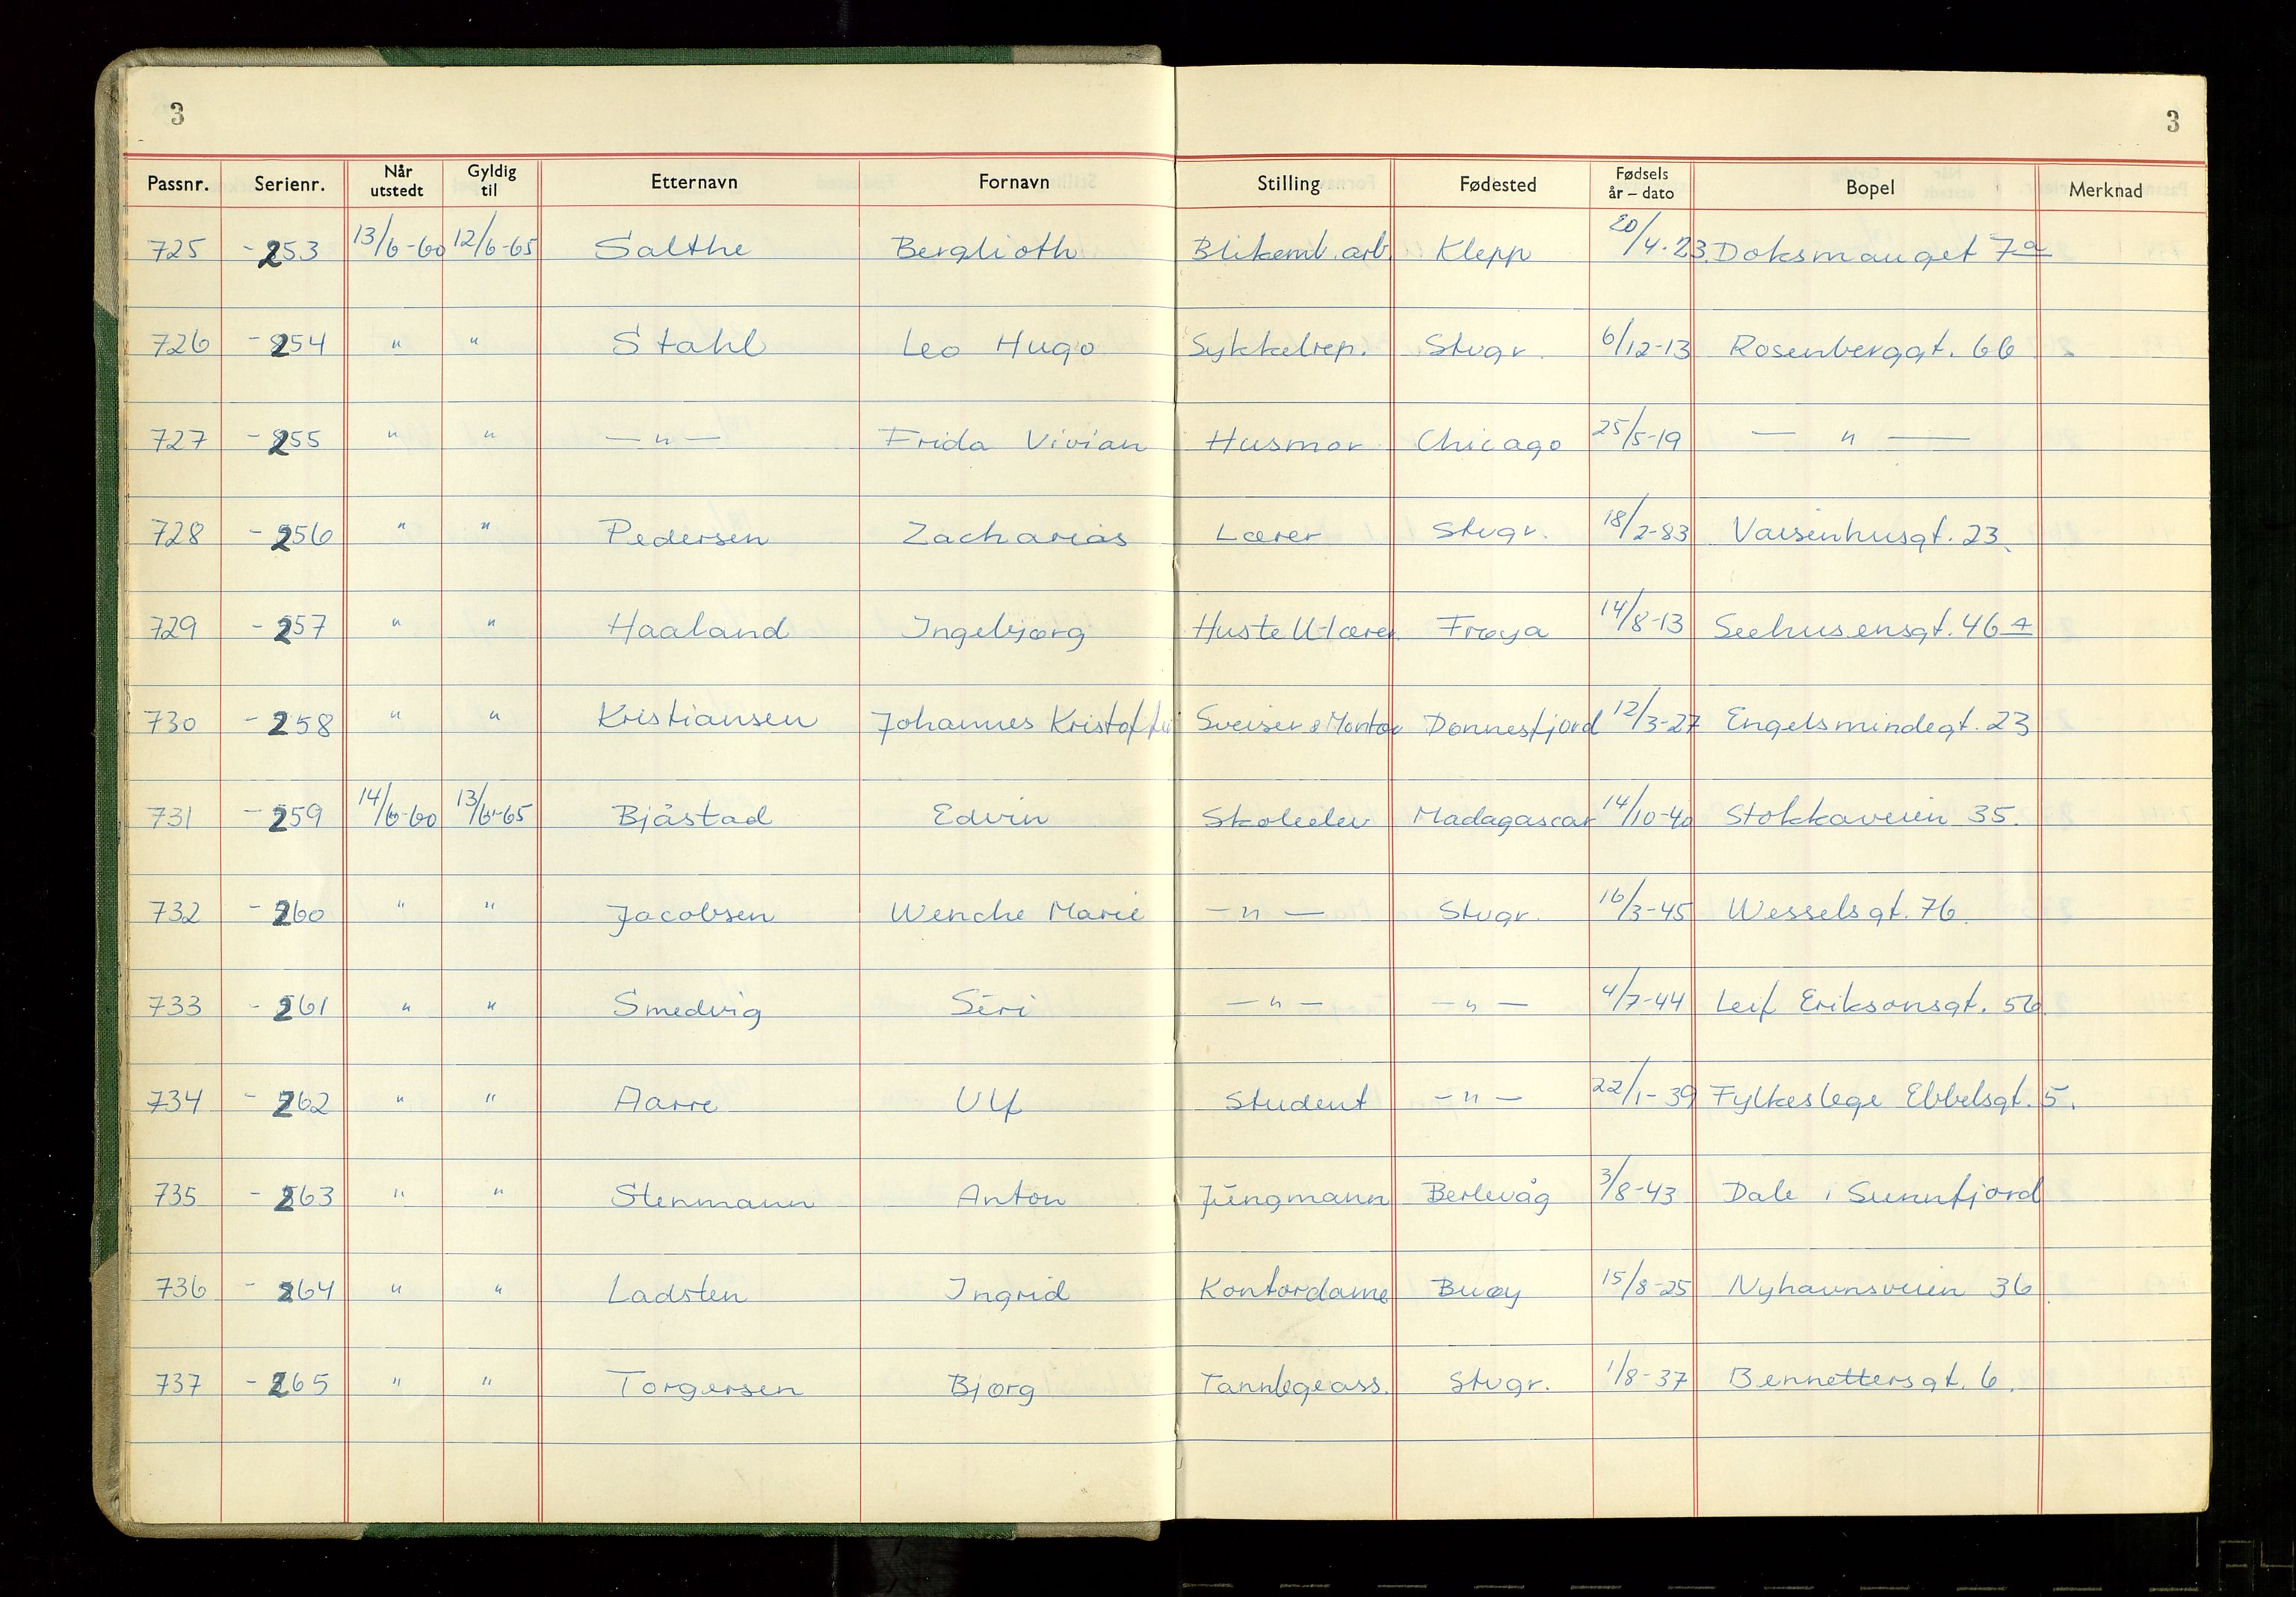 3 3
Passnr. Serienr. Når utstedt Gyldig til Etternavn Fornavn Stilling Fødested Fødsels år – dato Bopel Merknad
725 -253 13/6-60 12/6-65 Salthe Berglioth Blikemb. arb. Klepp 20/4-23. Doksmauget 7a
726 -254 " " Stahl Leo Hugo Sykkelrep. Stvgr. 6/12-13 Rosenberggt. 66
727 -255 " " — " — Frida Vivian Husmor Chicago 25/5-19 — " —
728 -256 " " Pedersen Zacharias Lærer Stvgr. 18/2-83 Vaisenhusgt. 23.
729 -257 " " Haaland Ingebjørg Hustell-lærer Frøya 14/8-13 Seehusensgt. 46 A
730 -258 " " Kristiansen Johannes Kristoffer Sveiser & Montør Dønnesfjord 12/3-27 Engelsmindegt. 23
731 -259 14/6-60 13/6-65 Bjåstad Edvin Skoleelev Madagascar 14/10-40 Stokkaveien 35.
732 -260 " " Jacobsen Wenche Marie — " — Stvgr. 16/3-45 Wesselsgt. 76.
733 -261 " " Smedvig Siri — " — — " — 4/7-44 Leif Eriksonsgt. 56.
734 -262 " " Aarre Ulf Student — " — 22/1-39 Fylkeslege Ebbelsgt. 5.
735 -263 " " Stenmann Anton Jungmann Berlevåg 3/8-43 Dale i Sunnfjord
736 -264 " " Ladsten Ingrid Kontordame Buøy 15/8-25 Nyhavnsveien 36
737 -265 " " Torgersen Bjørg Tannlegeass. Stvgr. 1/8-37 Bennettersgt. 6.